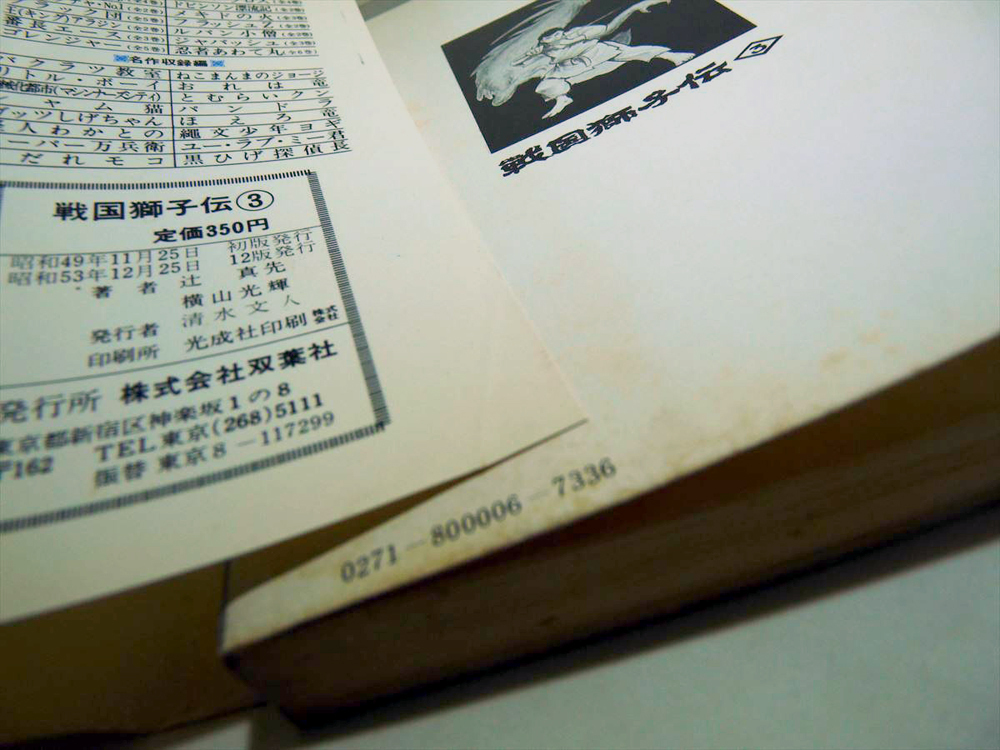 ドビンソン漂流記(全3巻)
ブラック団(全2巻)
キング)アラジン(全2巻)
番長エース(全2巻)
ルパン小僧(全3巻)
ゴレンジャー(全5巻)
ジャバッシュ(全3巻)
忍者あわて丸(全6巻)
名作収録編
バクラツ教室
ねこまんまのジョージ
リトル・ボーイ
おれは竜
とむらいクン
ジャム猫
パンドラ
ゲッツしげちゃん
ほえろ竜
人わかとの
縄文少年ヨギ
ーパー万兵衛
ユー・ラブ・ミー君
だれモコ
黒ひげ探偵長
戦国獅子伝③
定価350円
昭和49年11月25日 初版発行
昭和53年12月25日 12版発行
著者 辻真先
横山光輝
発行者 清水文人
印刷所 光成社印刷株式会社
発行所 株式会社双葉社
東京都新宿区神楽坂1の8
〒162 TEL東京(268)5111
振替 東京8-117299
戦国獅子伝 3
0271-800006-7336